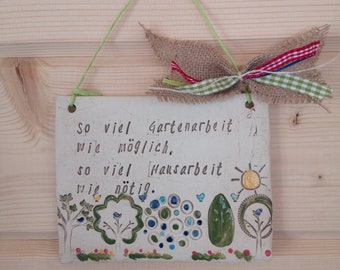 So viel Gartenarbeit
wie möglich,
so viel Hausarbeit
wie nötig.